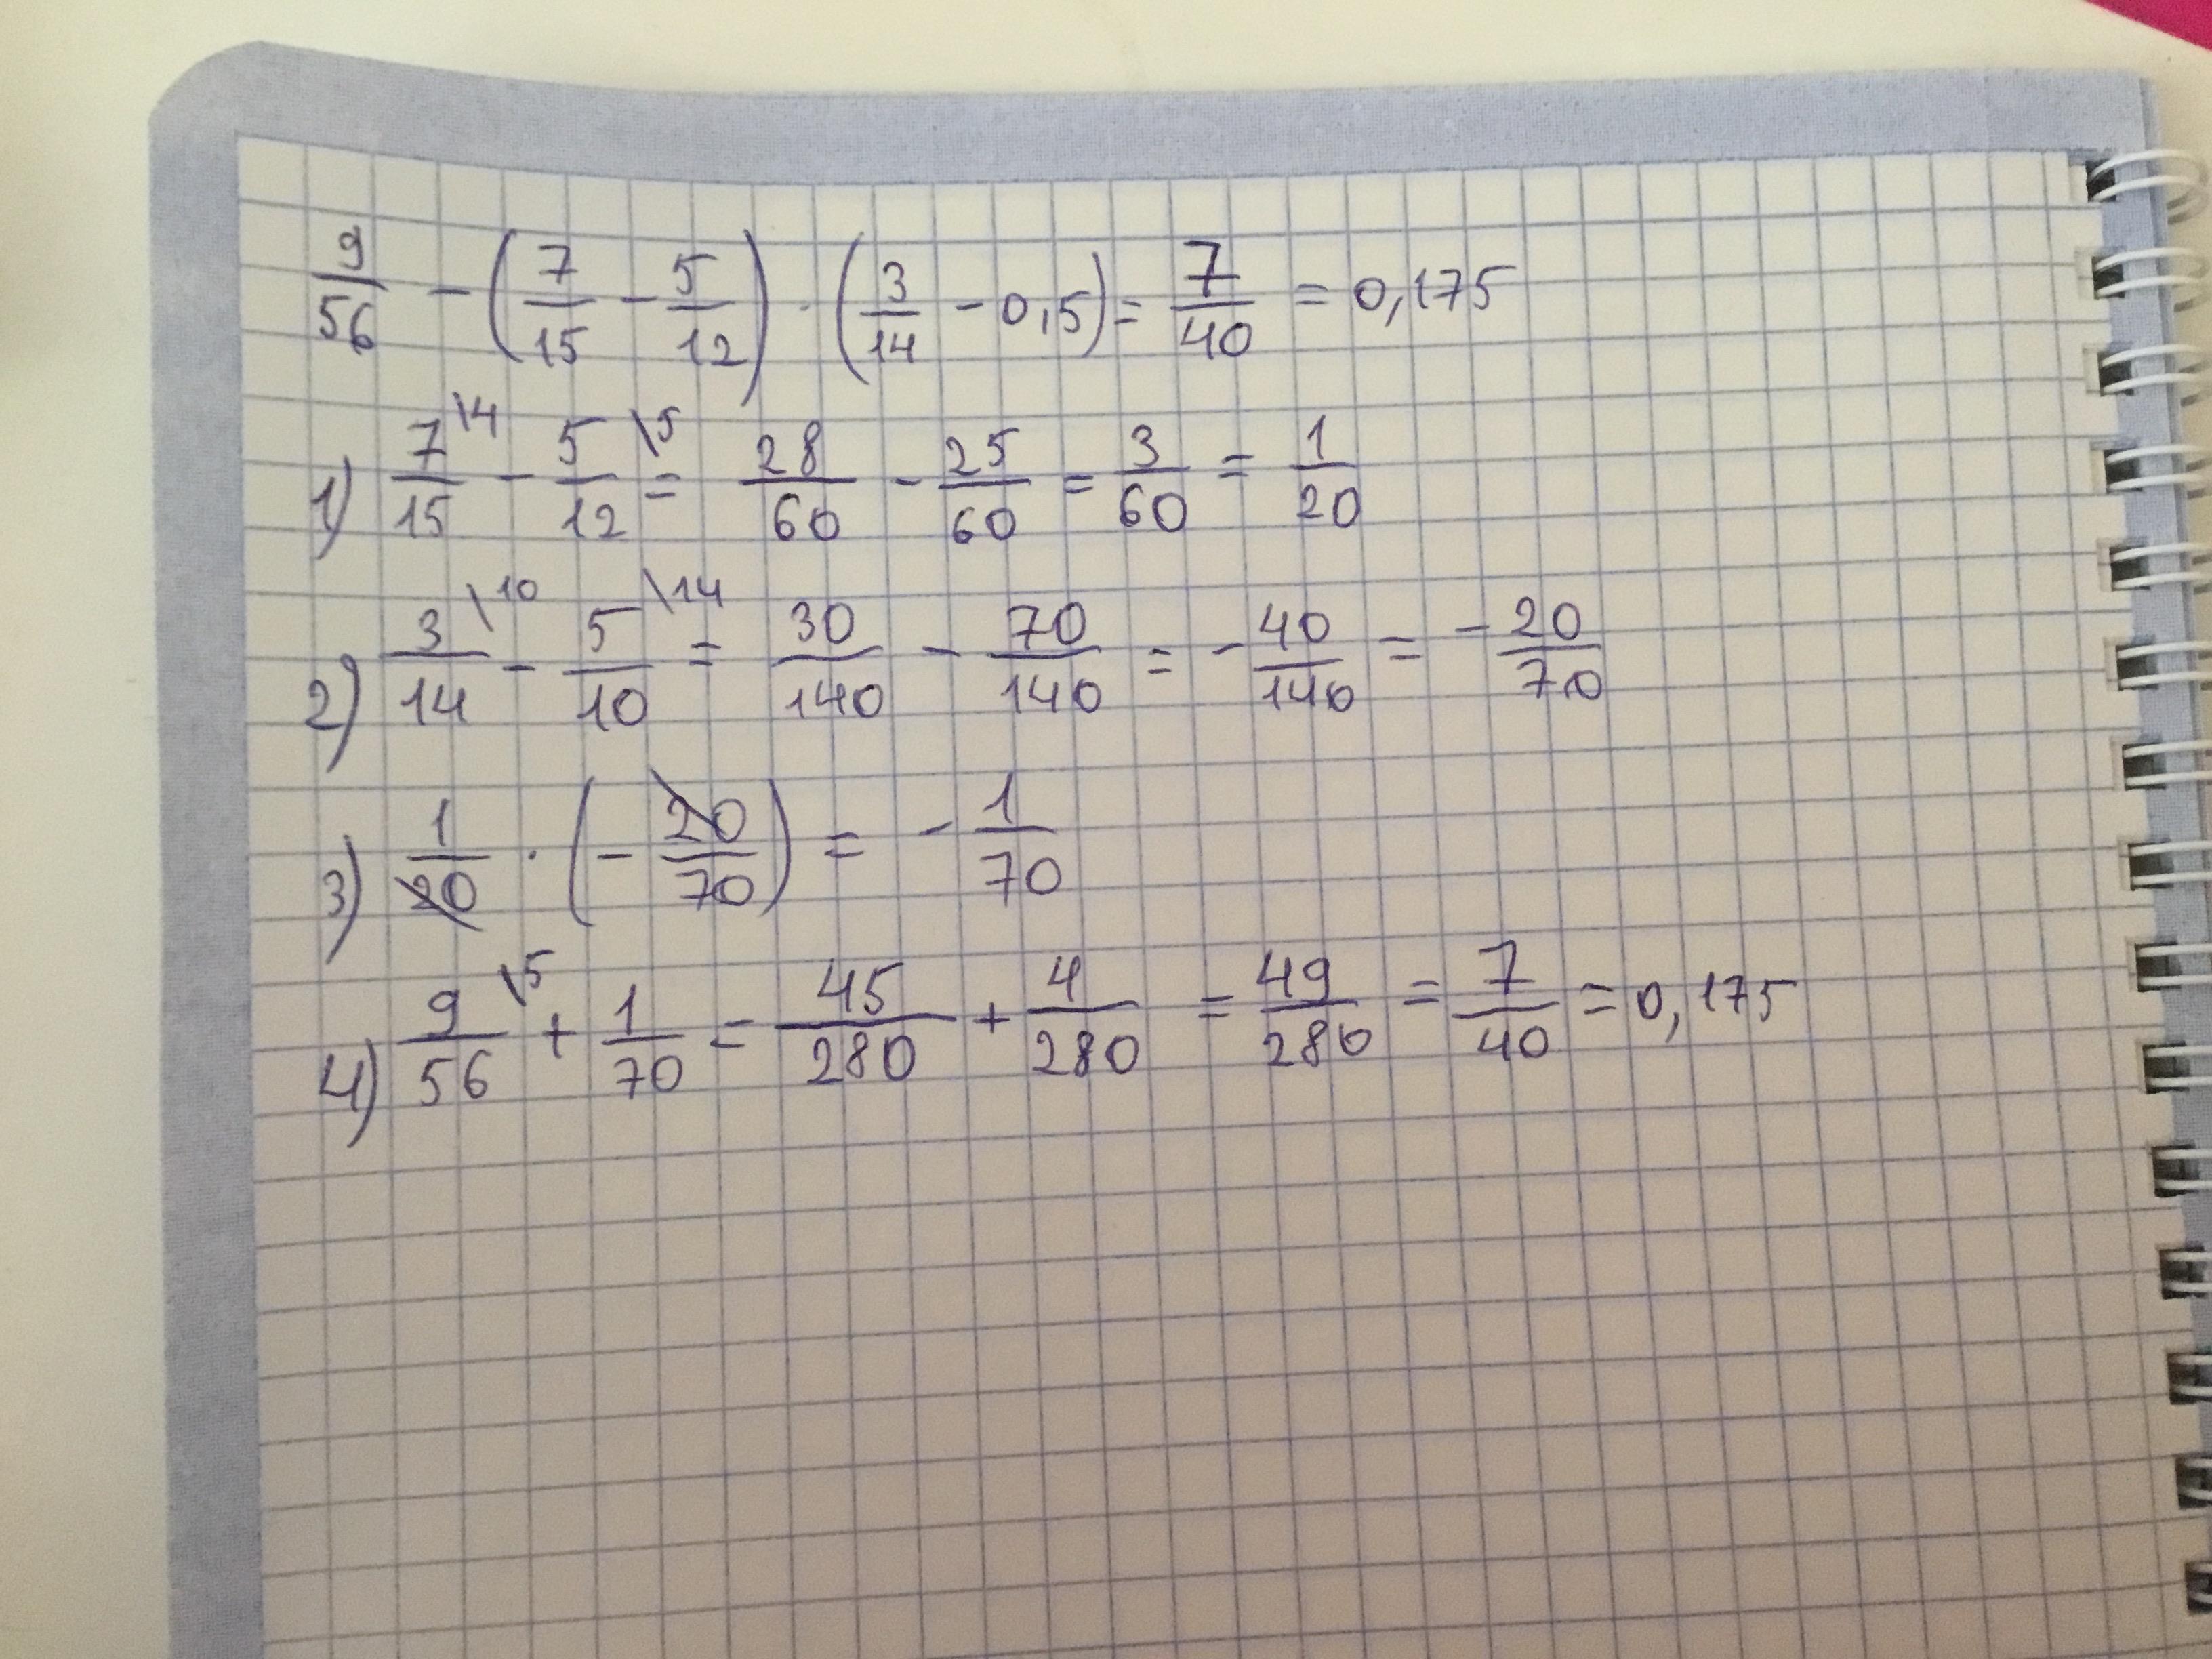 9/56 - (7/15 - 5/12) · (3/14 - 0,5) = 7/40 = 0,175
1) 7/15 \4 - 5/12 \5 = 28/60 - 25/60 = 3/60 = 1/20
2) 3/14 \10 - 5/10 \14 = 30/140 - 70/140 = - 40/140 = - 20/70
3) 1/20 · (- 20/70) = - 1/70
4) 9/56 \5 + 1/70 = 45/280 + 4/280 = 49/280 = 7/40 = 0,175